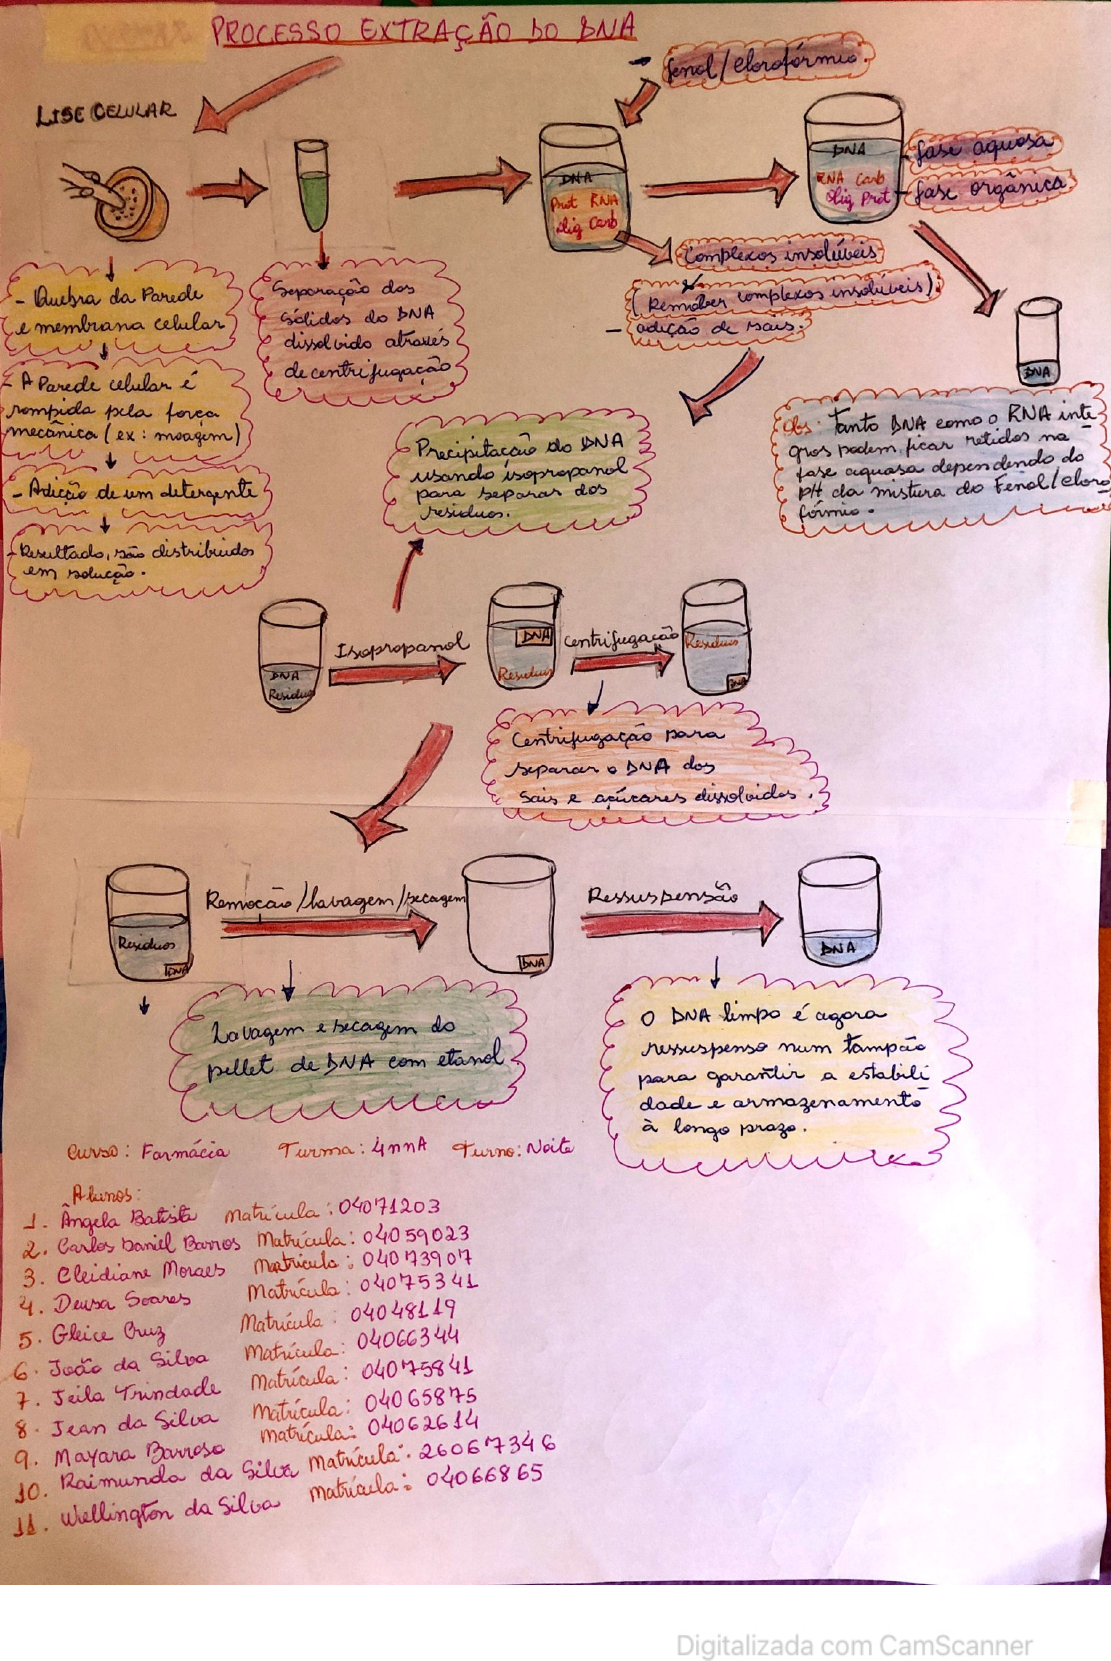 PROCESSO EXTRAÇÃO DO DNA
LISE CELULAR
fenol/clorofórmio.
DNA
Prot RNA
Lig Carb
DNA
RNA Carb
Lig Prot
fase aquosa
fase orgânica
Complexos insolúveis
(Remober complexos insolúveis).
- adição de sais.
DNA
- Quebra da Parede
e membrana celular
- A Parede celular é
rompida pela força
mecânica (ex: moagem)
- Adição de um detergente
- Resultado, são distribuídos
em solução.
Separação dos
sólidos do DNA
dissolvido através
de centrifugação
Precipitação do DNA
usando isopropanol
para separar dos
resíduos.
Obs: Tanto DNA como o RNA ínte
gros podem ficar retidos na
fase aquosa dependendo do
pH da mistura do Fenol/cloro
fórmio.
DNA
Resíduos
Isopropanol
DNA
Resíduos
Centrifugação
Resíduos
DNA
Centrifugação para
separar o DNA dos
Sais e açúcares dissolvidos.
Resíduos
DNA
Remoção/lavagem/secagem
DNA
Ressuspensão
DNA
Lavagem e secagem do
pellet de DNA com etanol.
O DNA limpo é agora
ressuspenso num tampão
para garantir a estabili
dade e armazenamento
à longo prazo.
Curso: Farmácia Turma: 4nnA Turno: Noite
Alunos:
1. Ângela Batista Matrícula: 04071203
2. Carlos Daniel Barros Matrícula: 04059023
3. Cleidiane Moraes Matrícula: 04073907
4. Deusa Soares Matrícula: 04075341
5. Gleice Cruz Matrícula: 04048119
6. João da Silva Matrícula: 04066344
7. Jeila Trindade Matrícula: 04075841
8. Jean da Silva Matrícula: 04065875
9. Mayara Barroso Matrícula: 04062614
10. Raimunda da Silva Matrícula: 26067346
11. Wellington da Silva Matrícula: 04066865
Digitalizada com CamScanner